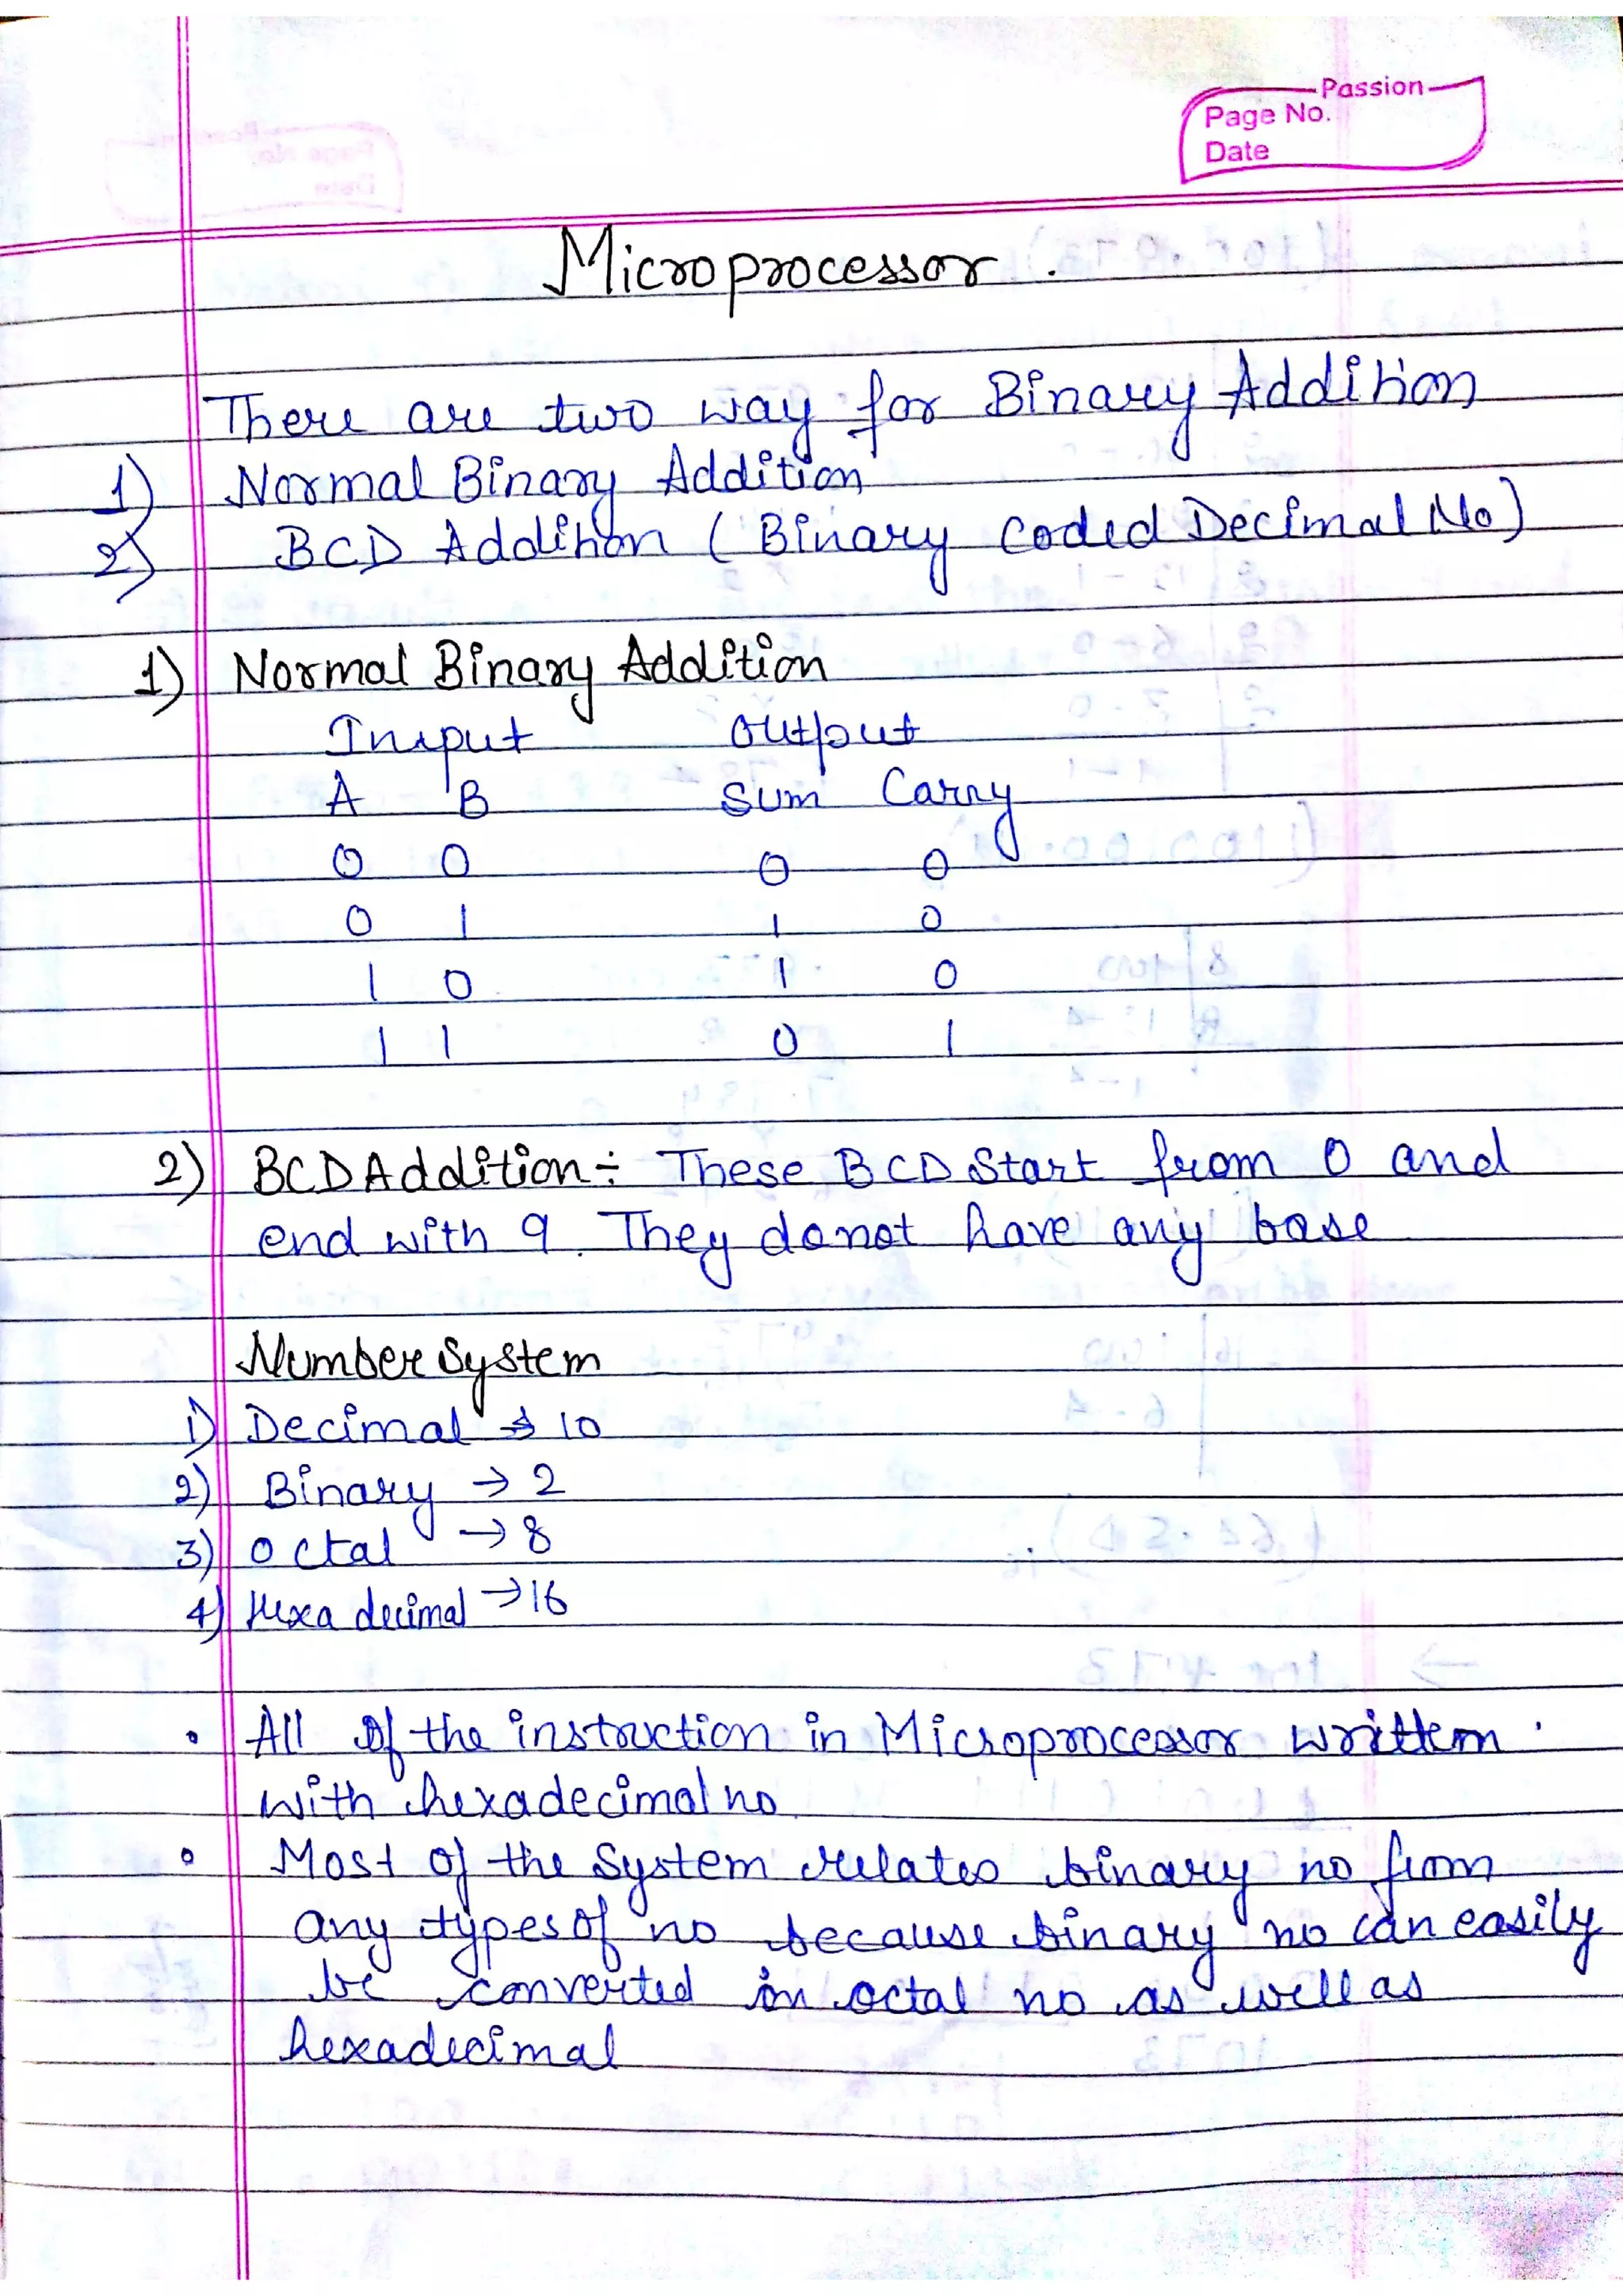 Passion
Page No.
Date
Microprocessor.
There are two way for Binary Addition
1) Normal Binary Addition
2) BCD Addition (Binary coded Decimal No)
1) Normal Binary Addition
Input Output
A B Sum Carry
0 0 0 0
0 1 1 0
1 0 1 0
1 1 0 1
2) BCD Addition ÷ These BCD Start from 0 and
end with 9. They donot have any base
Number System
1) Decimal → 10
2) Binary → 2
3) Octal → 8
4) Hexa decimal → 16
• All of the instruction in Microprocessor written
with hexadecimal no.
• Most of the System relates binary no from
any types of no because binary no can easily
be converted in octal no as well as
hexadecimal